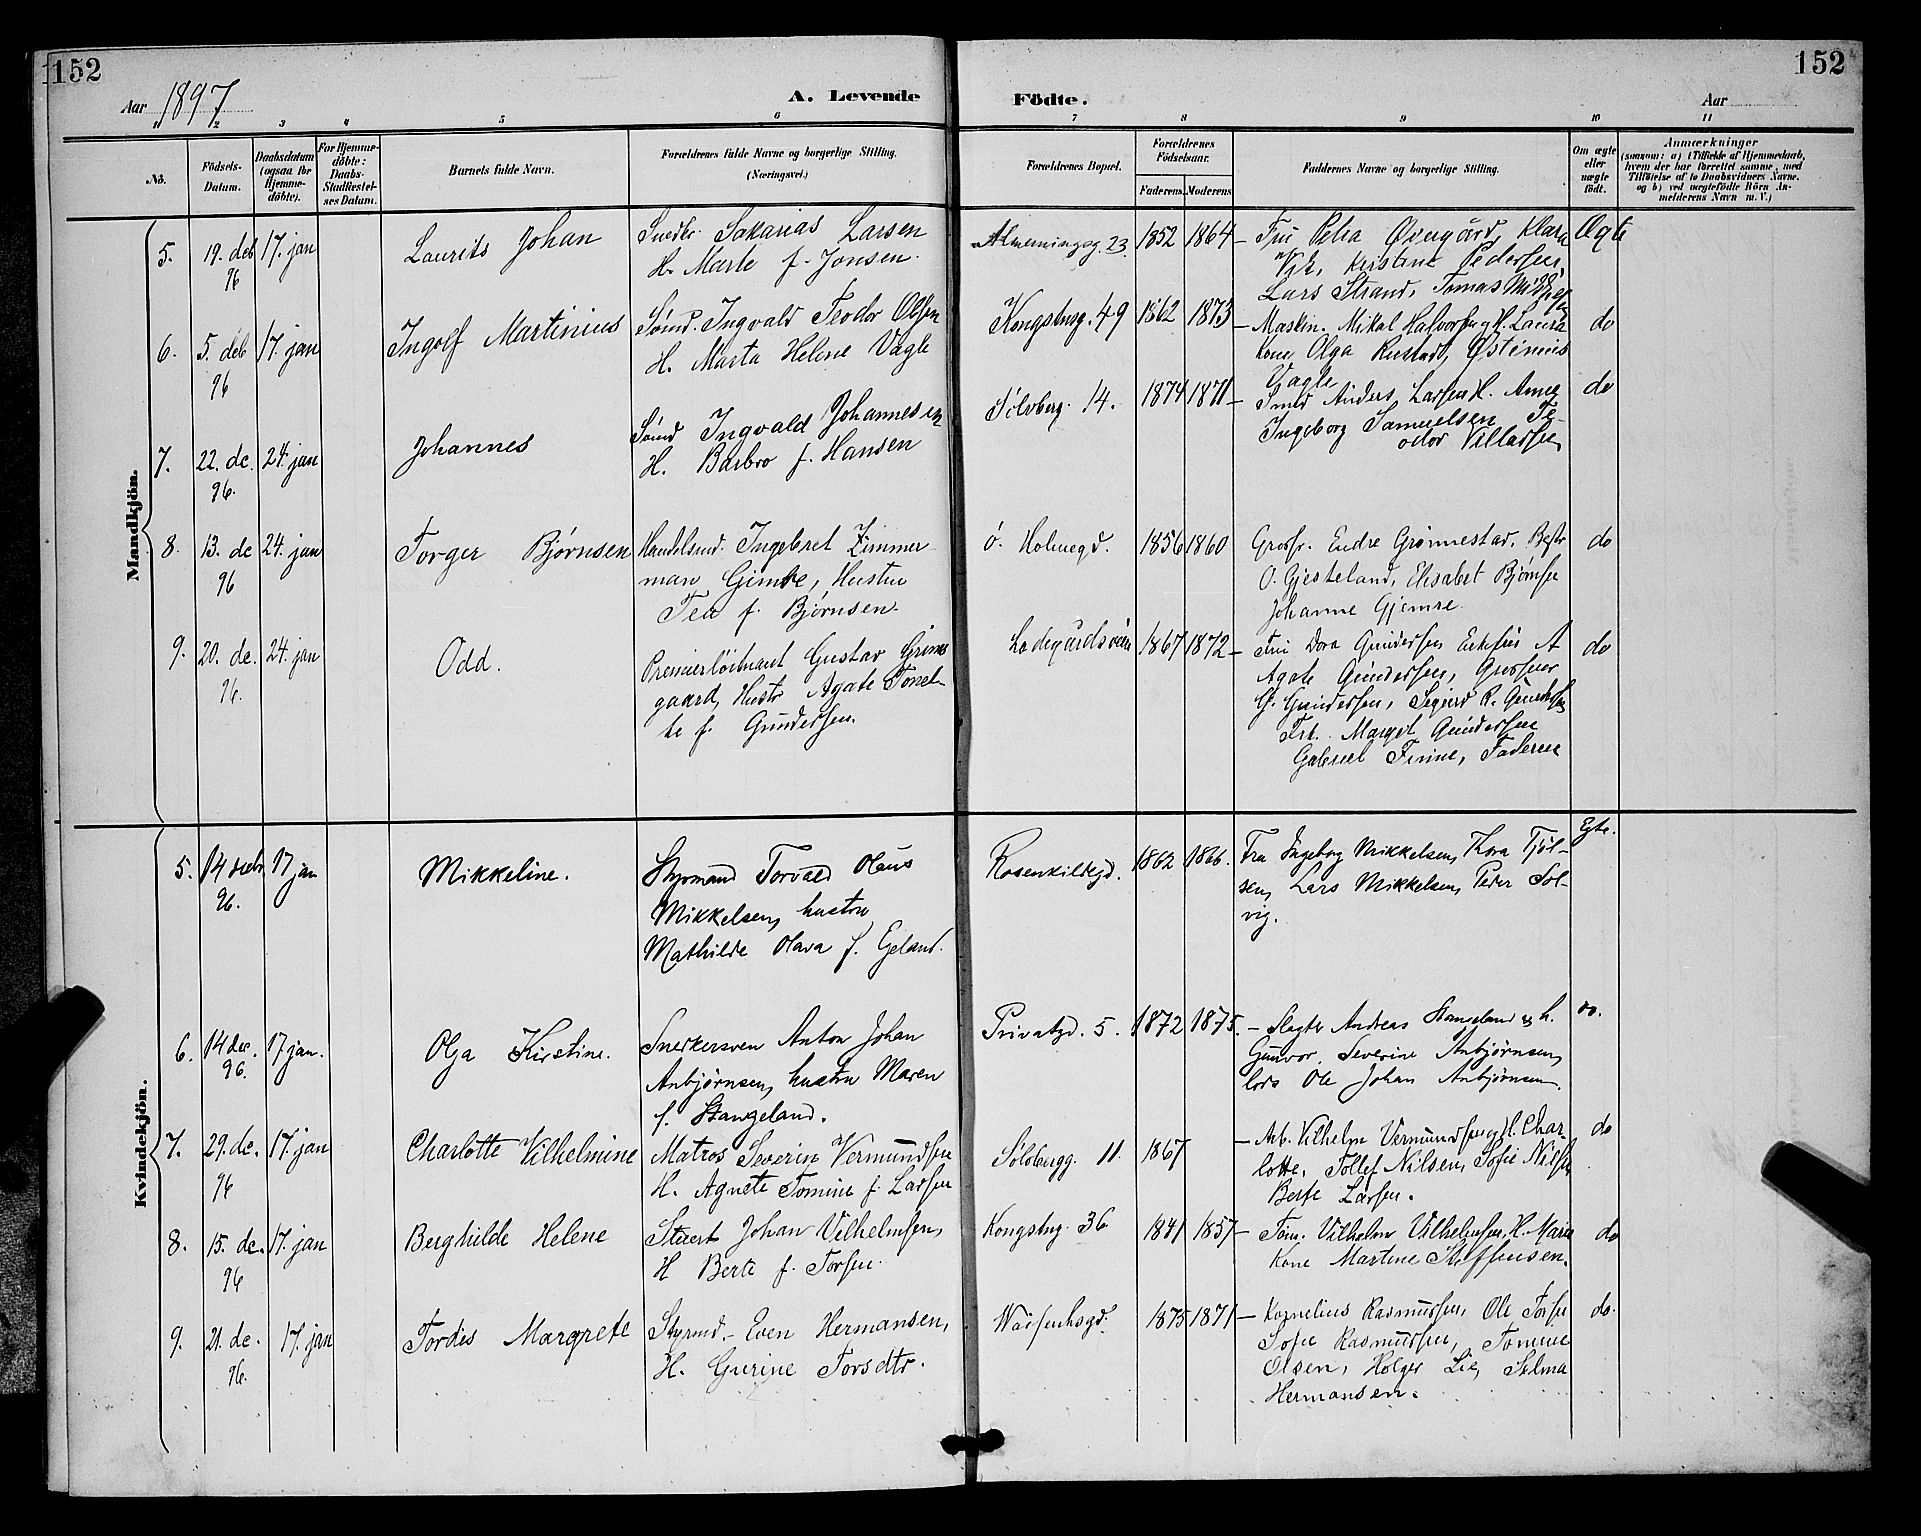 152
152
Aar 1897
A. Levende Födte.
Aar
1 2 3 4 5 6 7 8 9 10 11
No.
Födsels-Datum.
Daabsdatum (ogsaa for Hjemmedöbte).
For Hjemmedöbte: Daabs-Stadfæstelses Datum.
Barnets fulde Navn.
Forældrenes fulde Navne og borgerlige Stilling. (Næringsvei.)
Forældrenes Bopæl.
Forældrenes Födselsaar.
Faderens. Moderens.
Faddernes Navne og borgerlige Stilling.
Om ægte eller uægte födt.
Anmærkninger
(saasom: a) i Tilfælde af Hjemmedaab, hvem der har forrettet samme, med Tilföielse af to Daabsvidners Navne, og b) ved uægtefödte Börn Anmelderens Navn m. V.)
Mandkjön.
5. 19. deb 96 17. jan Laurits Johan
Snedkr. Sakarias Larsen
H. Marte f. Jonsen.
Almenningsg. 23. 1852 1864
– Fru Petra Øvergård, Klara
Vik, Kristine Pedersen,
Lars Strand, Tomas
Ægte
6. 5. deb 96 17. jan Ingolf Martinius
Sömd. Ingvald Teodor Olsen
H. Marta Helene Vagle
Kongsbg. 49 1862 1873
– Maskin. Mikal Halvorsen og H. Laura
Kone Olga Rustad, Østenius
Vagle
do
7. 22. de. 96. 24. jan Johannes
Sömd Ingvald Johannesen
H. Barbro f. Hansen
Sölvberg. 14. 1874 1871
– Smed Anders Larsen H. Anne
Ingeborg Samuelsen Te-
odor Villadsen
do
8. 13. de 96 24. jan Torger Bjørnsen
Handelsmd. Ingebret Zimmer-
man Gimre, Hustru
Tea f. Bjørnsen.
ö. Holmegd. 1856 1860
Grosr. Endre Grønnestad, Bestr
O. Gjesteland, Elisabet Bjørnsen
Johanne Gjemre.
do
9. 20. de. 96. 24. jan Odd.
Premierløitnant Gustav Grims
gaard, Hustr Agate Tonet-
te f. Gundersen.
Ladegårdsveien 1867 1872
– Fru Dora Gundersen Enkefru A
Agate Gundersen, Grosserer
G. Gundersen, Sigurd R. Gundersen
Frk. Margit Gundersen
Gabriel Finne, Faderen
do
Kvindekjön.
5. 14 decbr 96. 17 jan Mikkeline.
Styrmand Torvald Olaus
Mikkelsen, hustru
Mathilde Olava f. Egeland.
Rosenkildegd. 1862 1866.
Fru Ingeborg Mikkelsen, Thora Tjöl-
sen, Lars Mikkelsen, Peder Sol-
vig.
Egte.
6. 14 dec. 96. 17 jan. Olga Kirstine.
Snedkersven Anton Johan
Anbjørnsen, hustru Maren
f. Stangeland.
Privatgd. 5. 1872 1875.
– Slagter Andreas Stangeland og h.
Gunvor, Severine Anbjørnsen,
lods Ole Johan Anbjørnsen.
do.
7. 29. de. 96 17. jan Charlotte Vilhelmine
Matros Severin Vermundsen
H. Agnete Tomine f. Larsen
Sölvbergg. 11. 1867
– Arb. Vilhelm Vermundsen og H. Char-
lotte, Tollef Nilsen, Sofie Nilsen
Berte Larsen.
do
8. 15. de. 96 17. jan Berghilde Helene
Stuert Johan Vilhelmsen,
H Berte f. Torsen.
Kongsbg. 36 1841 1857
– Töm. Vilhelm Vilhelmsen, H. Marie
Kone Martine Steffensen.
do
9. 21. de. 96. 17. jan Tordis Margrete
Styrmd. – Even Hermansen,
H. Gurine Torsdtr.
Waisenhsgd. 1875 1871
– Kornelius Rasmussen, Ole Torsen
Sofie Rasmussen, Tomine
Olsen, Holger Lie, Selma
Hermansen.
do.